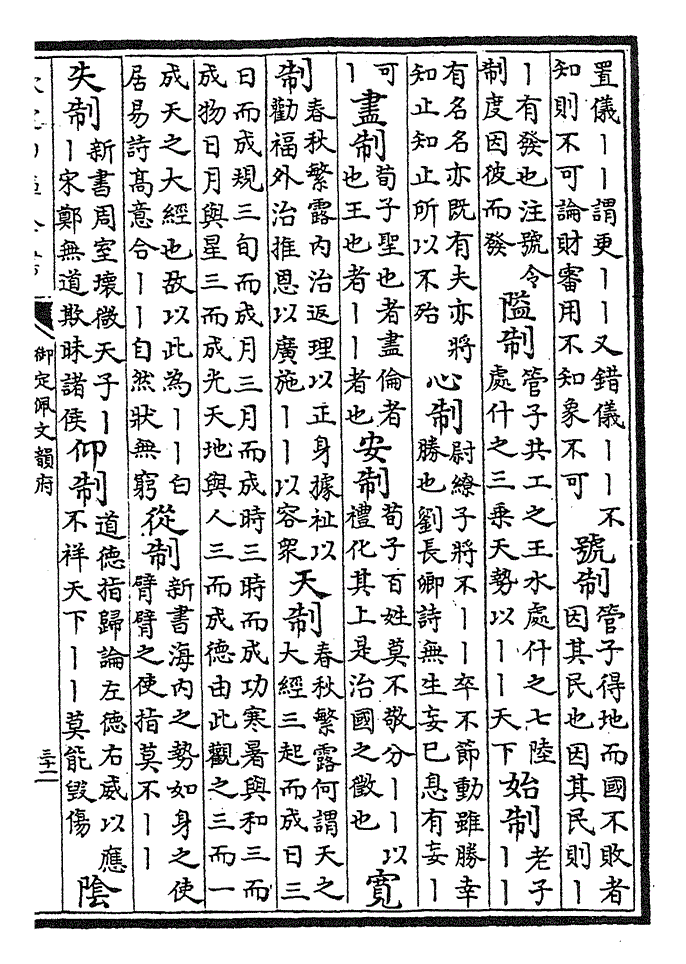 置儀丨丨謂更丨丨又錯儀丨丨不
知則不可論財審用不知象不可
號制
管子得地而國不敗者
因其民也因其民則丨
丨有發也注號令
制度因彼而發
隘制
管子共工之王水處什之七陸
處什之三乗天勢以丨丨天下
始制
老子
丨丨
有名名亦既有夫亦將
知止知止所以不殆
心制
尉繚子將不丨丨卒不節動雖勝幸
勝也劉長卿詩無生妄已息有妄丨
可
丨
盡制
荀子聖也者盡倫者
也王也者丨丨者也
安制
荀子百姓莫不敬分丨丨以
禮化其上是治國之徵也
寛
制
春秋繁露内治返理以正身據祉以
勸福外治推恩以廣施丨丨以容衆
天制
春秋繁露何謂天之
大經三起而成日三
日而成規三旬而成月三月而成時三時而成功寒暑與和三而
成物日月與星三而成光天地與人三而成德由此觀之三而一
成天之大經也故以此為丨丨白
居易詩髙意合丨丨自然狀無窮
從制
新書海内之勢如身之使
臂臂之使指莫不丨丨
失制
新書周室壞微天子丨
丨宋鄭無道欺昧諸侯
仰制
道德指歸論左德右威以應
不祥天下丨丨莫能毁傷
陰
御定佩文韻府
三十二